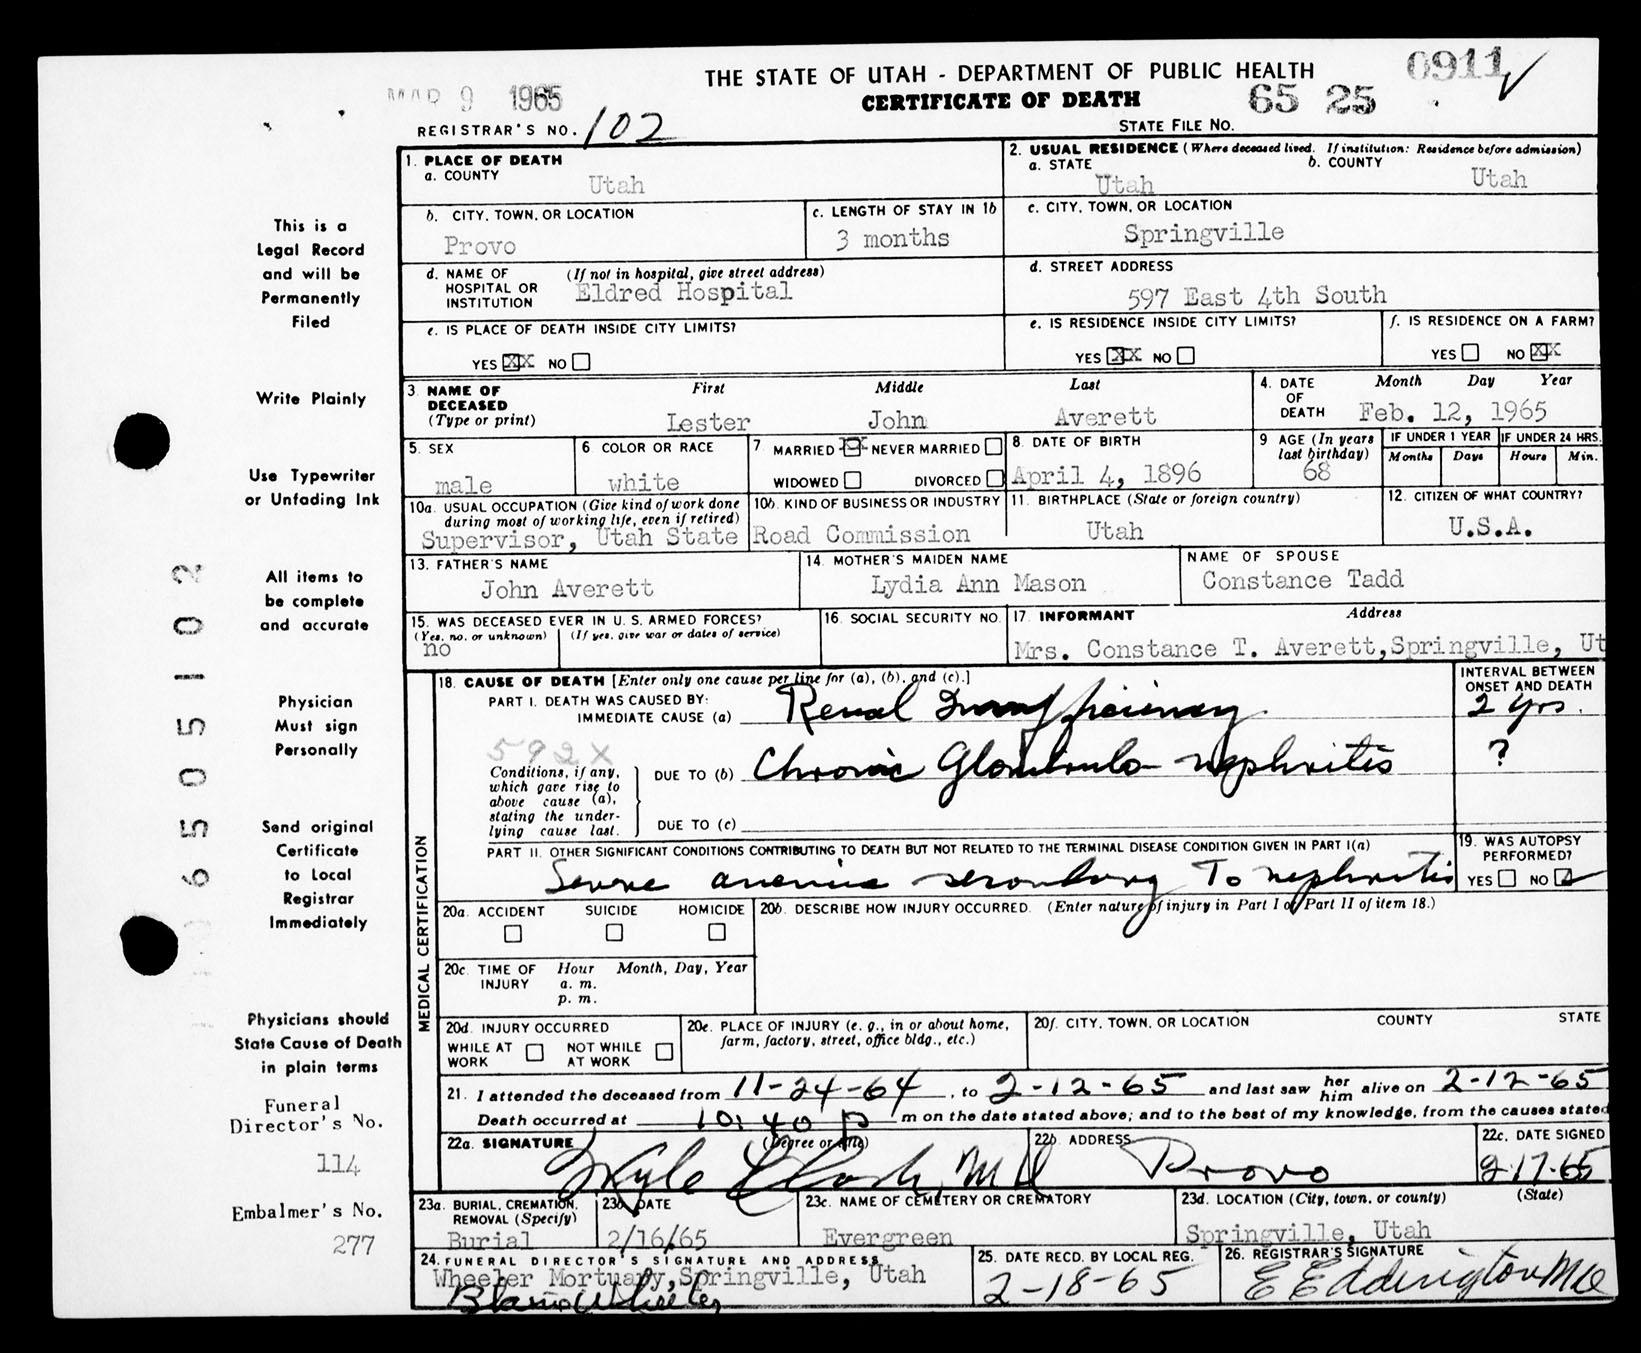 MAR 9 1965
THE STATE OF UTAH - DEPARTMENT OF PUBLIC HEALTH
0911 ✓
CERTIFICATE OF DEATH
65 25
REGISTRAR'S NO. 102
STATE FILE NO.
1. PLACE OF DEATH
a. COUNTY
Utah
2. USUAL RESIDENCE (Where deceased lived. If institution: Residence before admission)
a. STATE
Utah
b. COUNTY
Utah
b. CITY, TOWN, OR LOCATION
Provo
c. LENGTH OF STAY IN 1b
3 months
c. CITY, TOWN, OR LOCATION
Springville
d. NAME OF HOSPITAL OR INSTITUTION
(If not in hospital, give street address)
Eldred Hospital
d. STREET ADDRESS
597 East 4th South
e. IS PLACE OF DEATH INSIDE CITY LIMITS?
YES XX NO
e. IS RESIDENCE INSIDE CITY LIMITS?
YES XX NO
f. IS RESIDENCE ON A FARM?
YES NO XX
3. NAME OF DECEASED
(Type or print)
First Middle Last
Lester John Averett
4. DATE OF DEATH
Month Day Year
Feb. 12, 1965
5. SEX
male
6. COLOR OR RACE
white
7. MARRIED X NEVER MARRIED
WIDOWED DIVORCED
8. DATE OF BIRTH
April 4, 1896
9. AGE (In years last birthday)
68
IF UNDER 1 YEAR
Months Days
IF UNDER 24 HRS.
Hours Min.
10a. USUAL OCCUPATION (Give kind of work done during most of working life, even if retired)
Supervisor, Utah State
10b. KIND OF BUSINESS OR INDUSTRY
Road Commission
11. BIRTHPLACE (State or foreign country)
Utah
12. CITIZEN OF WHAT COUNTRY?
U.S.A.
13. FATHER'S NAME
John Averett
14. MOTHER'S MAIDEN NAME
Lydia Ann Mason
NAME OF SPOUSE
Constance Tadd
15. WAS DECEASED EVER IN U. S. ARMED FORCES?
(Yes, no, or unknown) (If yes, give war or dates of service)
no
16. SOCIAL SECURITY NO.
17. INFORMANT Address
Mrs. Constance T. Averett, Springville, Ut
MEDICAL CERTIFICATION
18. CAUSE OF DEATH [Enter only one cause per line for (a), (b), and (c).]
INTERVAL BETWEEN ONSET AND DEATH
PART I. DEATH WAS CAUSED BY:
IMMEDIATE CAUSE (a) Renal Insufficiency
2 yrs.
592X
Conditions, if any, which gave rise to above cause (a), stating the underlying cause last.
DUE TO (b) Chronic Glomerulo-nephritis
?
DUE TO (c)
PART II. OTHER SIGNIFICANT CONDITIONS CONTRIBUTING TO DEATH BUT NOT RELATED TO THE TERMINAL DISEASE CONDITION GIVEN IN PART I(a)
Severe anemia secondary To nephritis
19. WAS AUTOPSY PERFORMED?
YES NO
20a. ACCIDENT SUICIDE HOMICIDE
20b. DESCRIBE HOW INJURY OCCURRED. (Enter nature of injury in Part I or Part II of item 18.)
20c. TIME OF INJURY
Hour Month, Day, Year
a. m.
p. m.
20d. INJURY OCCURRED
WHILE AT WORK NOT WHILE AT WORK
20e. PLACE OF INJURY (e. g., in or about home, farm, factory, street, office bldg., etc.)
20f. CITY, TOWN, OR LOCATION COUNTY STATE
21. I attended the deceased from 11-24-64, to 2-12-65 and last saw her him alive on 2-12-65
Death occurred at 10:40 P m on the date stated above; and to the best of my knowledge, from the causes stated
22a. SIGNATURE (Degree or title)
M D
22b. ADDRESS
Provo
22c. DATE SIGNED
2-17-65
23a. BURIAL, CREMATION, REMOVAL (Specify)
Burial
23b. DATE
2/16/65
23c. NAME OF CEMETERY OR CREMATORY
Evergreen
23d. LOCATION (City, town, or county) (State)
Springville, Utah
24. FUNERAL DIRECTOR'S SIGNATURE AND ADDRESS
Wheeler Mortuary, Springville, Utah
25. DATE RECD. BY LOCAL REG.
2-18-65
26. REGISTRAR'S SIGNATURE
E E Eddington MD
This is a
Legal Record
and will be
Permanently
Filed
Write Plainly
Use Typewriter
or Unfading Ink
All items to
be complete
and accurate
Physician
Must sign
Personally
Send original
Certificate
to Local
Registrar
Immediately
Physicians should
State Cause of Death
in plain terms
Funeral
Director's No.
114
Embalmer's No.
277
65 05102